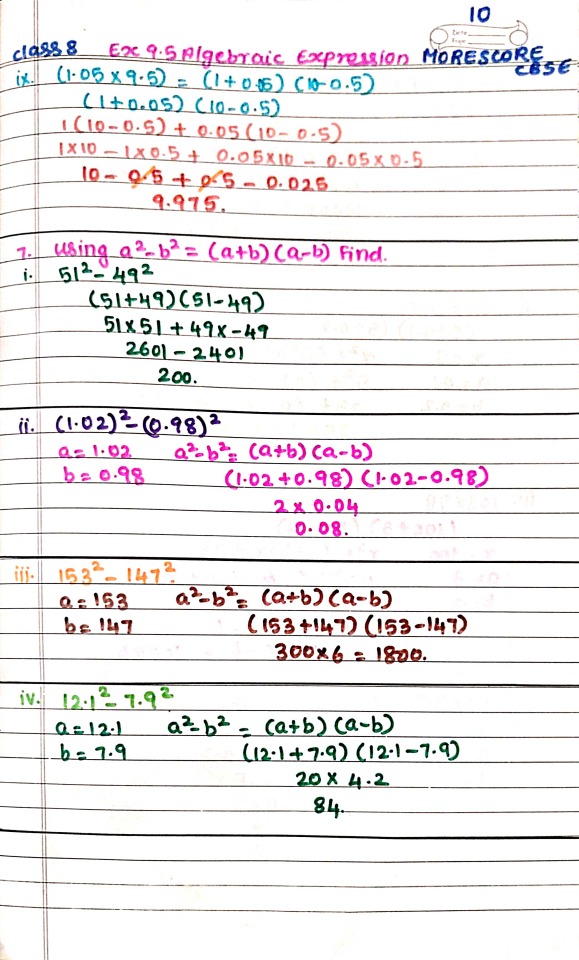 10
class 8 Exc 9.5 Algebraic Expression MORESCORE
CBSE
ix. (1.05 × 9.5) = (1+0.05) (10-0.5)
(1+0.05) (10-0.5)
1(10-0.5) + 0.05(10-0.5)
1×10 - 1×0.5 + 0.05×10 - 0.05×0.5
10 - 0.5 + 0.5 - 0.025
9.975.
7. Using a²-b² = (a+b)(a-b) Find.
i. 51² - 49²
(51+49)(51-49)
51×51 + 49×-49
2601 - 2401
200.
ii. (1.02)² - (0.98)²
a = 1.02 a²-b² = (a+b)(a-b)
b = 0.98 (1.02+0.98) (1.02-0.98)
2 × 0.04
0.08.
iii. 153² - 147².
a = 153 a²-b² = (a+b)(a-b)
b = 147 (153+147) (153-147)
300×6 = 1800.
iv. 12.1² - 7.9²
a = 12.1 a²-b² = (a+b)(a-b)
b = 7.9 (12.1+7.9) (12.1-7.9)
20 × 4.2
84.